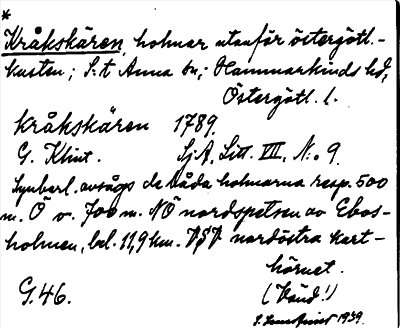 *
Kråkskären, holmar utanför östergötl.-
kusten; S:t Anna sn; Hammarkinds hd,
Östergötl. l.
Kråkskären 1789.
G. Klint. SjA, Litt. VII. N:o 9.
Synberl. avsågs de båda holmarna resp. 500
m. Ö o. 700 m. NÖ nordspetsen av Ebos-
holmen, bel. 11,9 km. VSV nordöstra kart-
hörnet.
G. 46. (Vänd!)
1939.